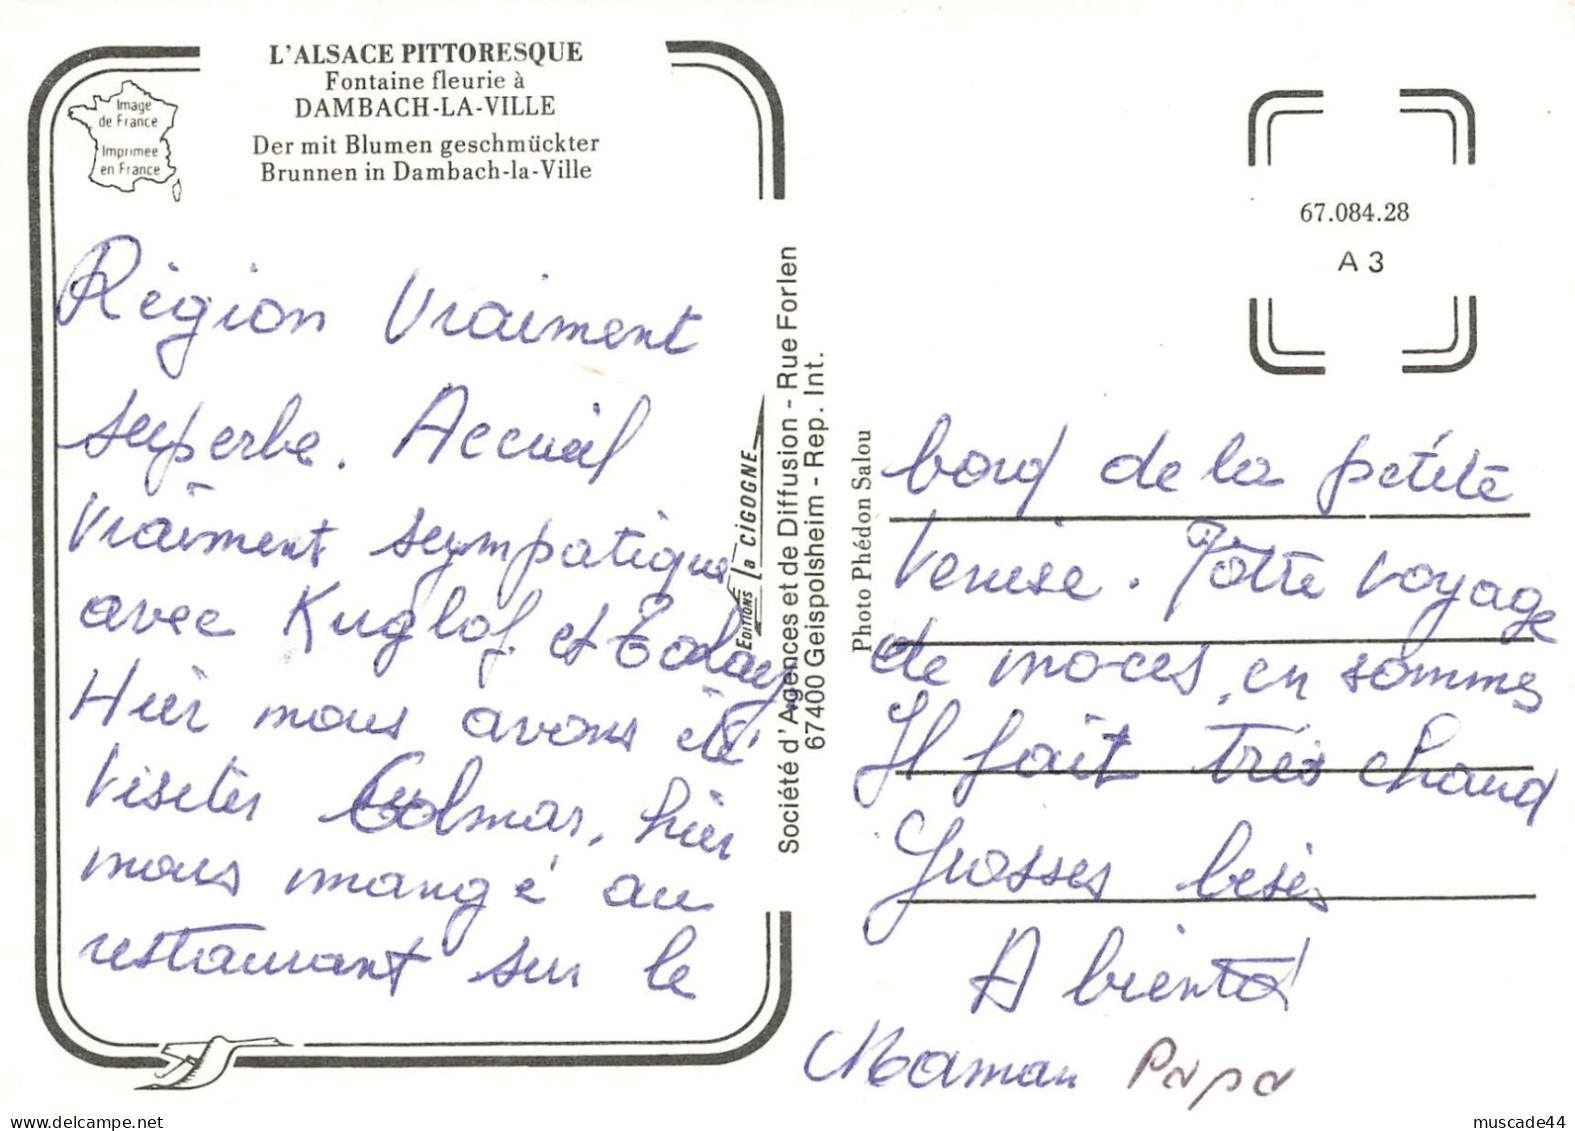 L'ALSACE PITTORESQUE
Fontaine fleurie à
DAMBACH-LA-VILLE
Der mit Blumen geschmückter
Brunnen in Dambach-la-Ville
Image
de France
Imprimee
en France
Région Vraiment
superbe. Accueil
Vraiment sympatique
avec Kuglof et
Hier nous avons été
Visiter Colmar, hier
nous mangé au
restaurant sur le
EDITIONS la CIGOGNE
Société d'Agences et de Diffusion - Rue Forlen
67400 Geispolsheim - Rep. Int.
Photo Phédon Salou
67.084.28
A 3
bord de la petite
Venise. Notre voyage
de noces, en sommes
Il fait très chaud
Grosses bises
A bientot
Maman Papa
muscade44